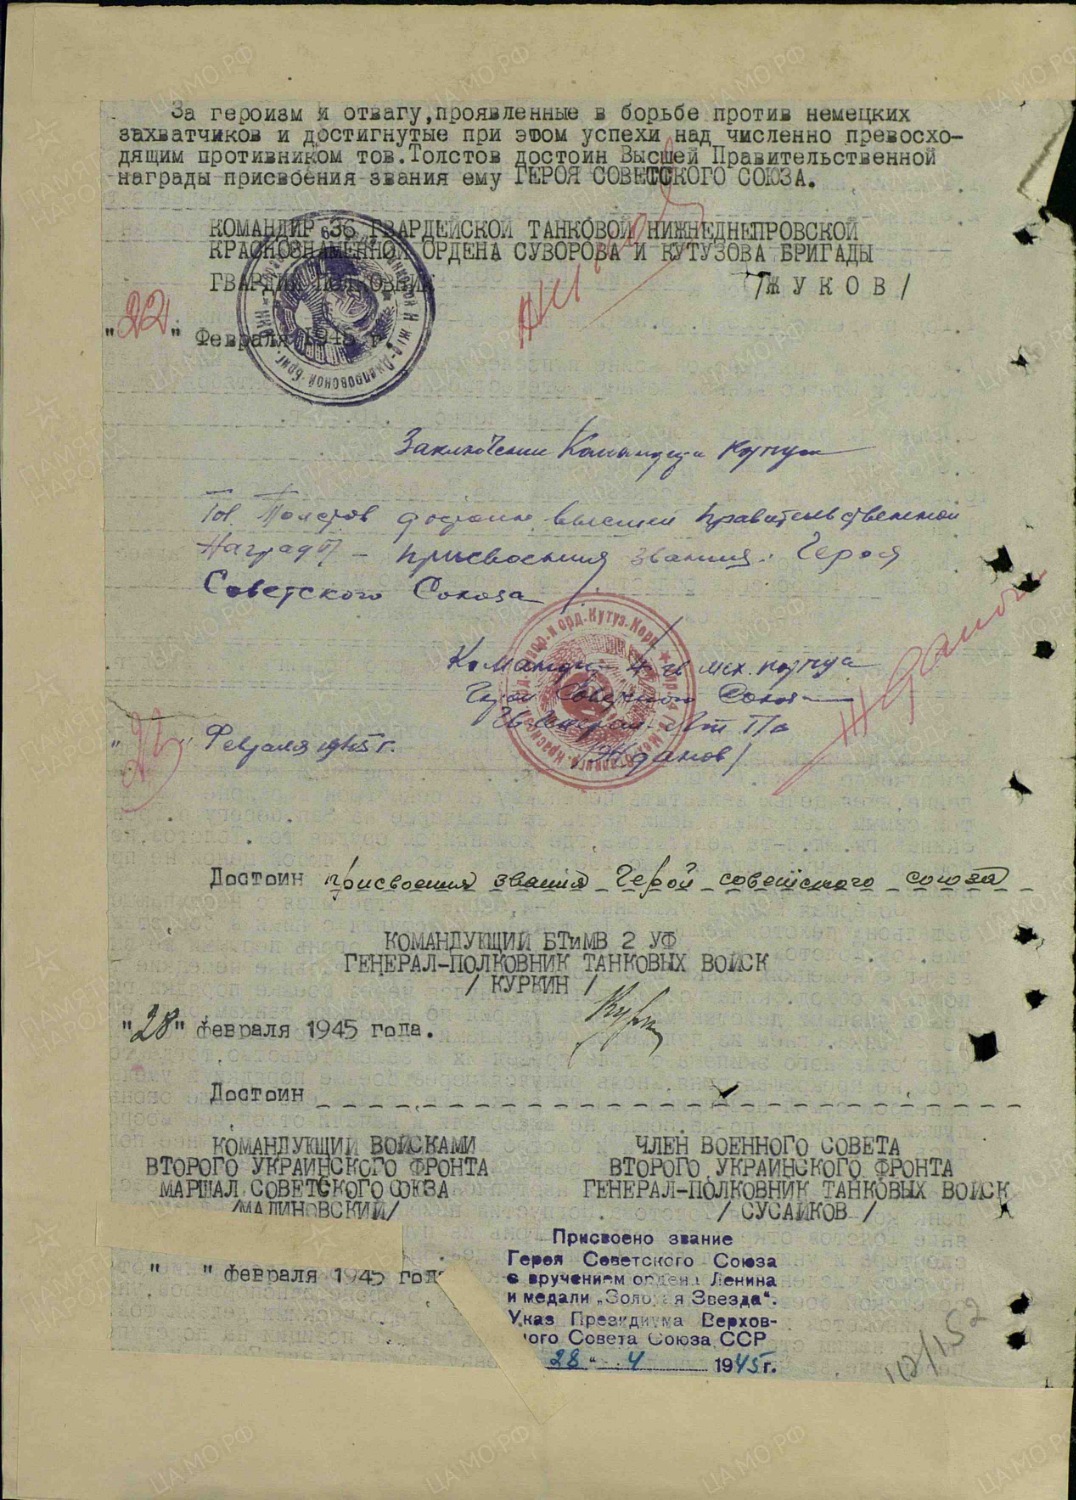 За героизм и отвагу, проявленные в борьбе против немецких
захватчиков и достигнутые при этом успехи над численно превосхо-
дящим противником тов. Толстов достоин Высшей Правительственной
награды присвоения звания ему ГЕРОЯ СОВЕТСКОГО СОЮЗА.
КОМАНДИР 36 ГВАРДЕЙСКОЙ ТАНКОВОЙ НИЖНЕДНЕПРОВСКОЙ
КРАСНОЗНАМЕННОЙ ОРДЕНА СУВОРОВА И КУТУЗОВА БРИГАДЫ
ГВАРДИИ ПОЛКОВНИК /Ж У К О В/
"22" Февраля 1945 г.
Заключение Командира корпуса
Тов. Толстов достоин высшей правительственной
Награды – присвоения звания Героя
Советского Союза
Командир 4 гв мех. корпуса
Герой Советского Союза
/Жданов/
" " Февраля 1945 г.
Достоин присвоения звания Герой советского союза
КОМАНДУЮЩИЙ БТиМВ 2 УФ
ГЕНЕРАЛ-ПОЛКОВНИК ТАНКОВЫХ ВОЙСК
/ КУРКИН /
"28" февраля 1945 года.
Достоин
КОМАНДУЮЩИЙ ВОЙСКАМИ
ВТОРОГО УКРАИНСКОГО ФРОНТА
МАРШАЛ СОВЕТСКОГО СОЮЗА
/МАЛИНОВСКИЙ/
ЧЛЕН ВОЕННОГО СОВЕТА
ВТОРОГО УКРАИНСКОГО ФРОНТА
ГЕНЕРАЛ-ПОЛКОВНИК ТАНКОВЫХ ВОЙСК
/ СУСАЙКОВ /
" " февраля 1945 года
Присвоено звание
Героя Советского Союза
с вручением ордена Ленина
и медали „Золотая Звезда".
Указ Президиума Верхов-
ного Совета Союза ССР
28 " 4 1945 г.
ЦАМО.РФ